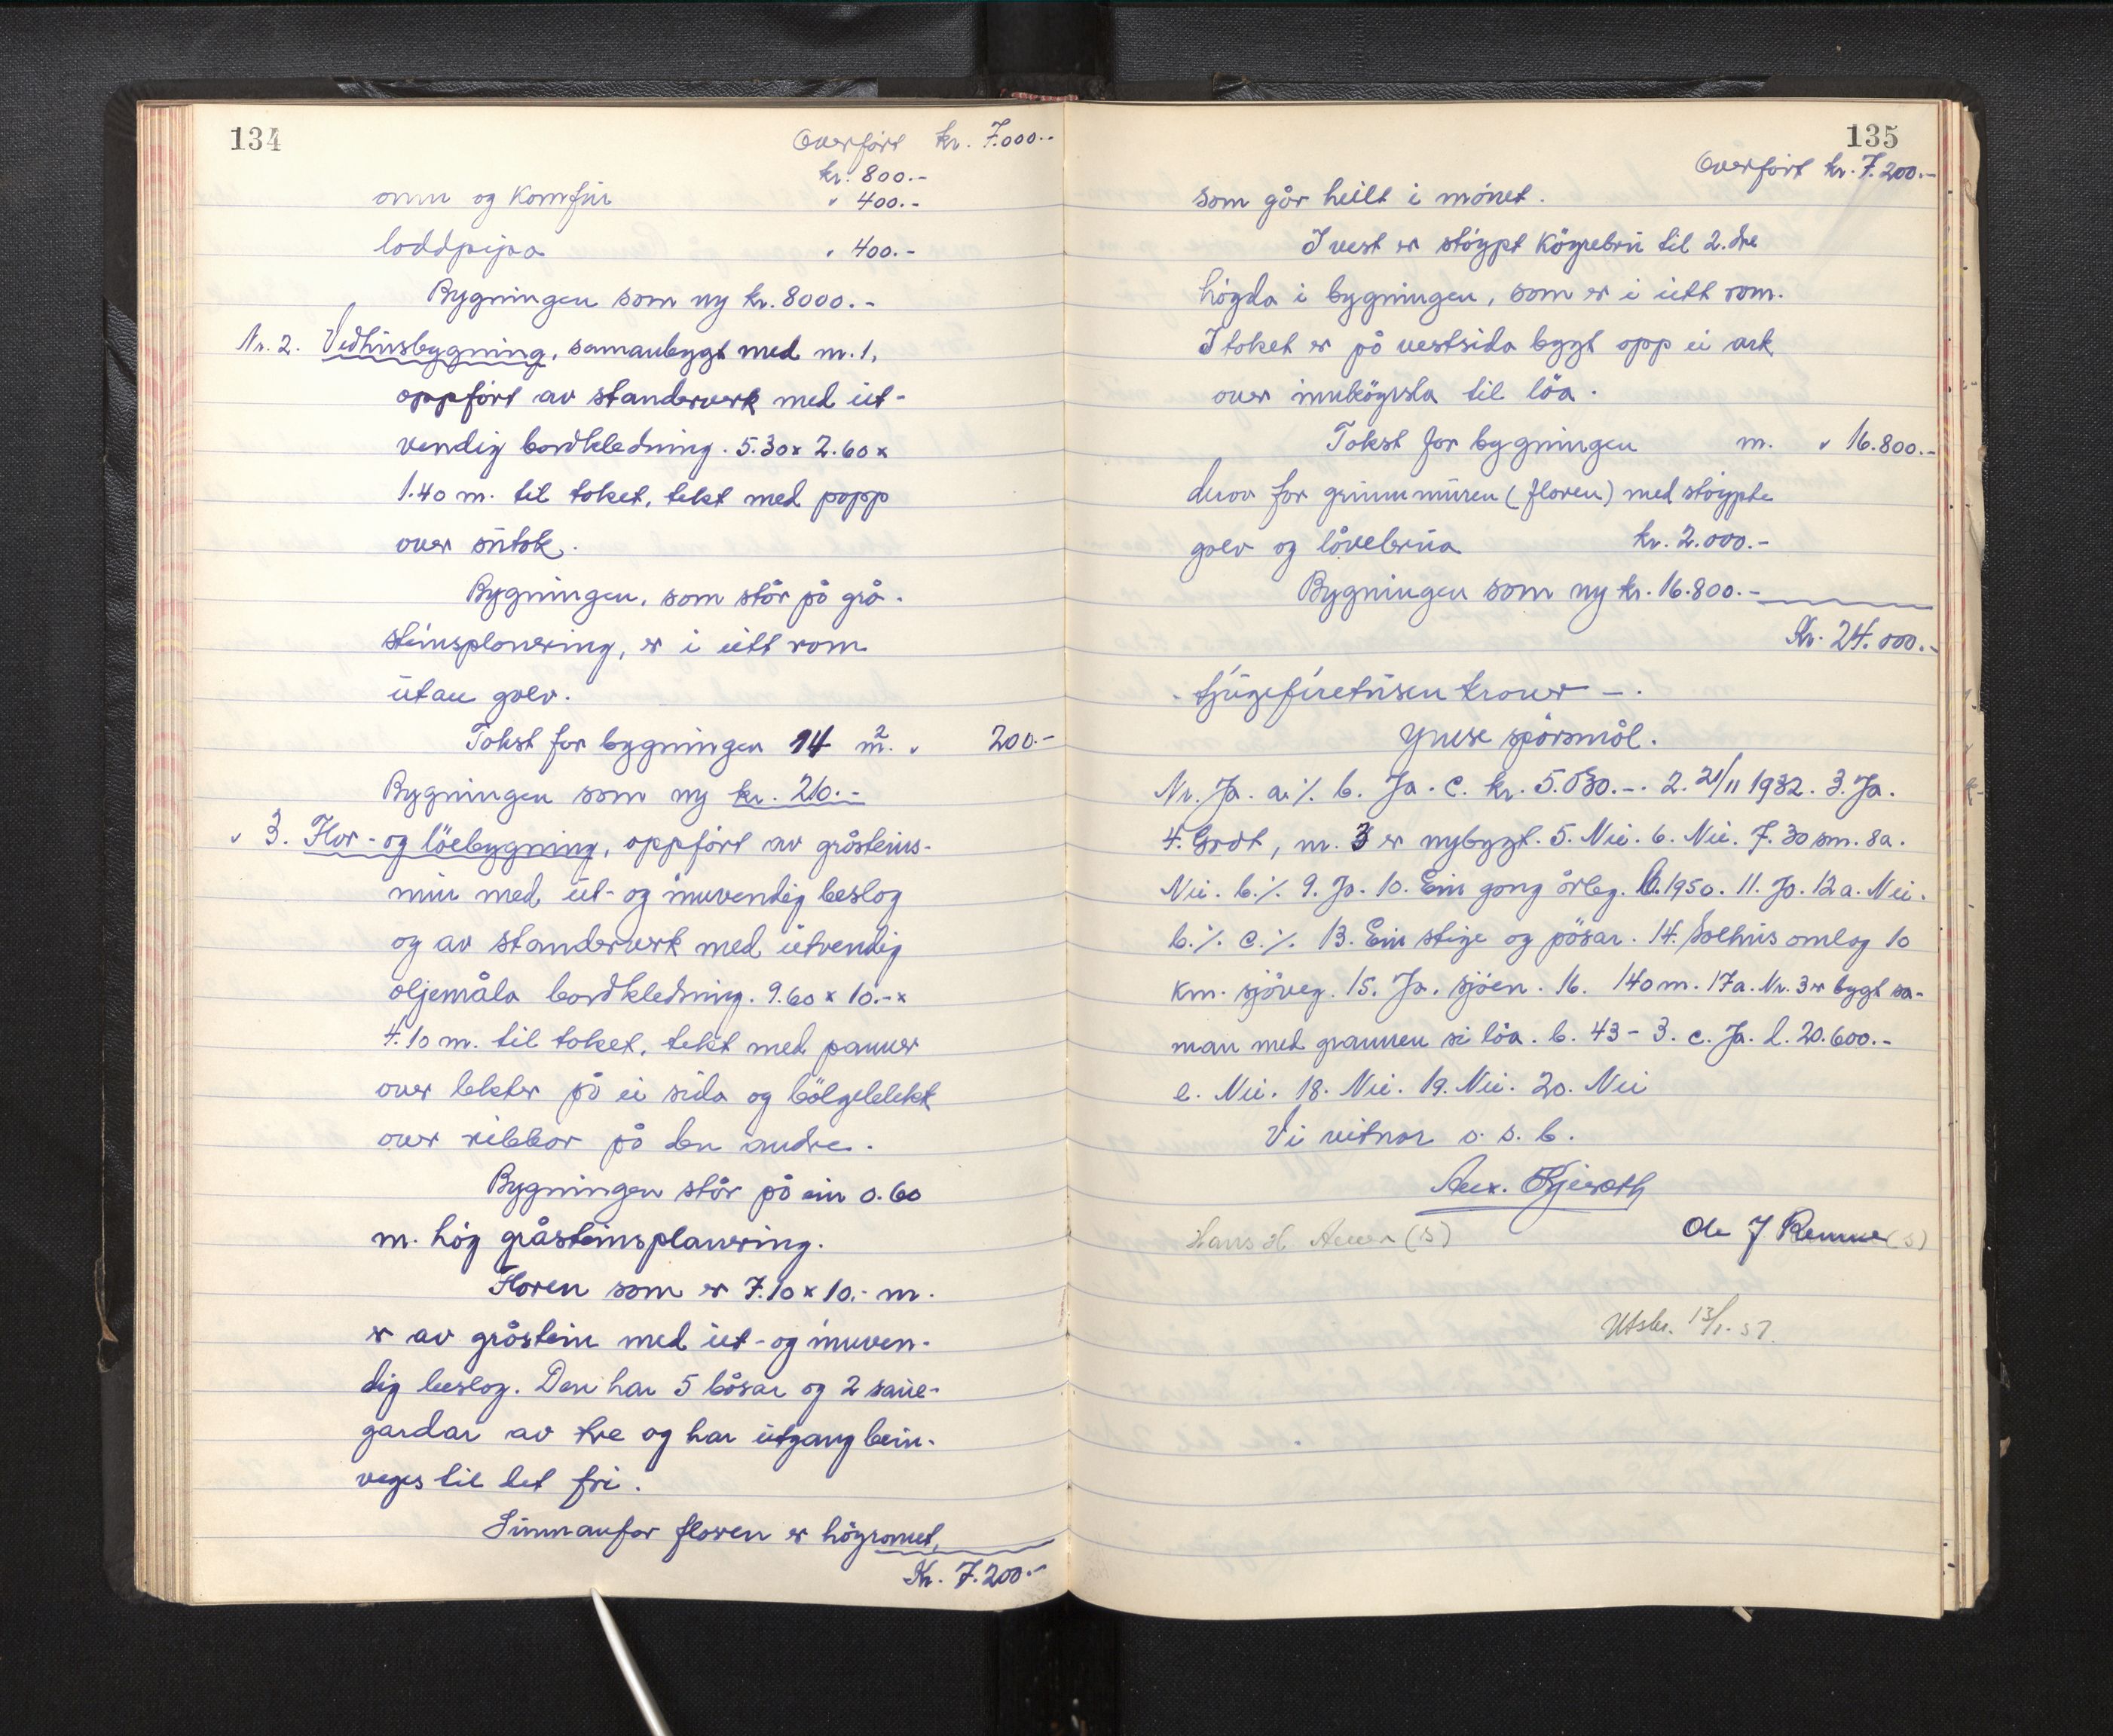 134
Overført kr. 7.000.-
kr. 800.-
omn og komfur " 400.-
loddpipa " 400.-
Bygningen som ny kr. 8000.-
Nr. 2. Vedhusbygning, samanbygt med nr. 1,
oppført av standerverk med ut-
vendig bordkledning. 5.30 x 2.60 x
1.40 m. til taket, tekt med papp
over sutak.
Bygningen, som står på grå-
steinsplanering, er i eitt rom
utan golv.
Takst for bygningen 14 m². " 200.-
Bygningen som ny kr. 210.-
" 3. Flor- og löebygning, oppført av gråsteins-
mur med ut- og innvendig beslag
og av standerverk med utvendig
oljemåla bordkledning. 9.60 x 10.- x
4.10 m. til taket, tekt med panner
over lekter på ei sida og bölgeblekk
over ribbor på den andre.
Bygningen står på ein 0.60
m. høg gråsteinsplanering.
Floren som er 7.10 x 10.- m.
er av gråstein med ut- og innven-
dig beslag. Den har 5 båsar og 2 saue-
gardar av tre og har utgang bein-
veges til det fri.
Innanfor floren er höyromet,
Kr. 7.200.-
135
Overført kr. 7.200.-
som går heilt i mønet.
I vest er støypt köyrebru til 2. dre
högda i bygningen, som er i eitt rom.
I taket er på vestsida bygt opp ei ark
over innköyrsla til löa.
Takst for bygningen m. " 16.800.-
derav for grunnmuren (floren) med støypte
golv og låvebrua kr. 2.000.-
Bygningen som ny kr. 16.800.-
Kr. 24.000.-
- tjugefiretusen kroner -.
Ymse spørsmål.
Nr. Ja. a. ٪ b. Ja. c. kr. 5.030.-. 2. 21/11 1932. 3. Ja.
4. Godt, nr. 3 er nybygt. 5. Nei. 6. Nei. 7. 30 sm. 8a.
Nei. b. ٪ 9. Ja. 10. Ein gong årleg. b. 1950. 11. Ja. 12a. Nei.
b. ٪ c. ٪ 13. Ein stige og pösar. 14. Solhus omlag 10
km. sjöveg. 15. Ja. sjöen. 16. 140 m. 17a. Nr. 3 er bygt sa-
man med grannen si löa. b. 43 - 3. c. Ja. d. 20.600.-
e. Nei. 18. Nei. 19. Nei. 20. Nei
Vi vitnar o. s. b.
Hans H (s) Ole J (s)
Utskr. 13/1-51.